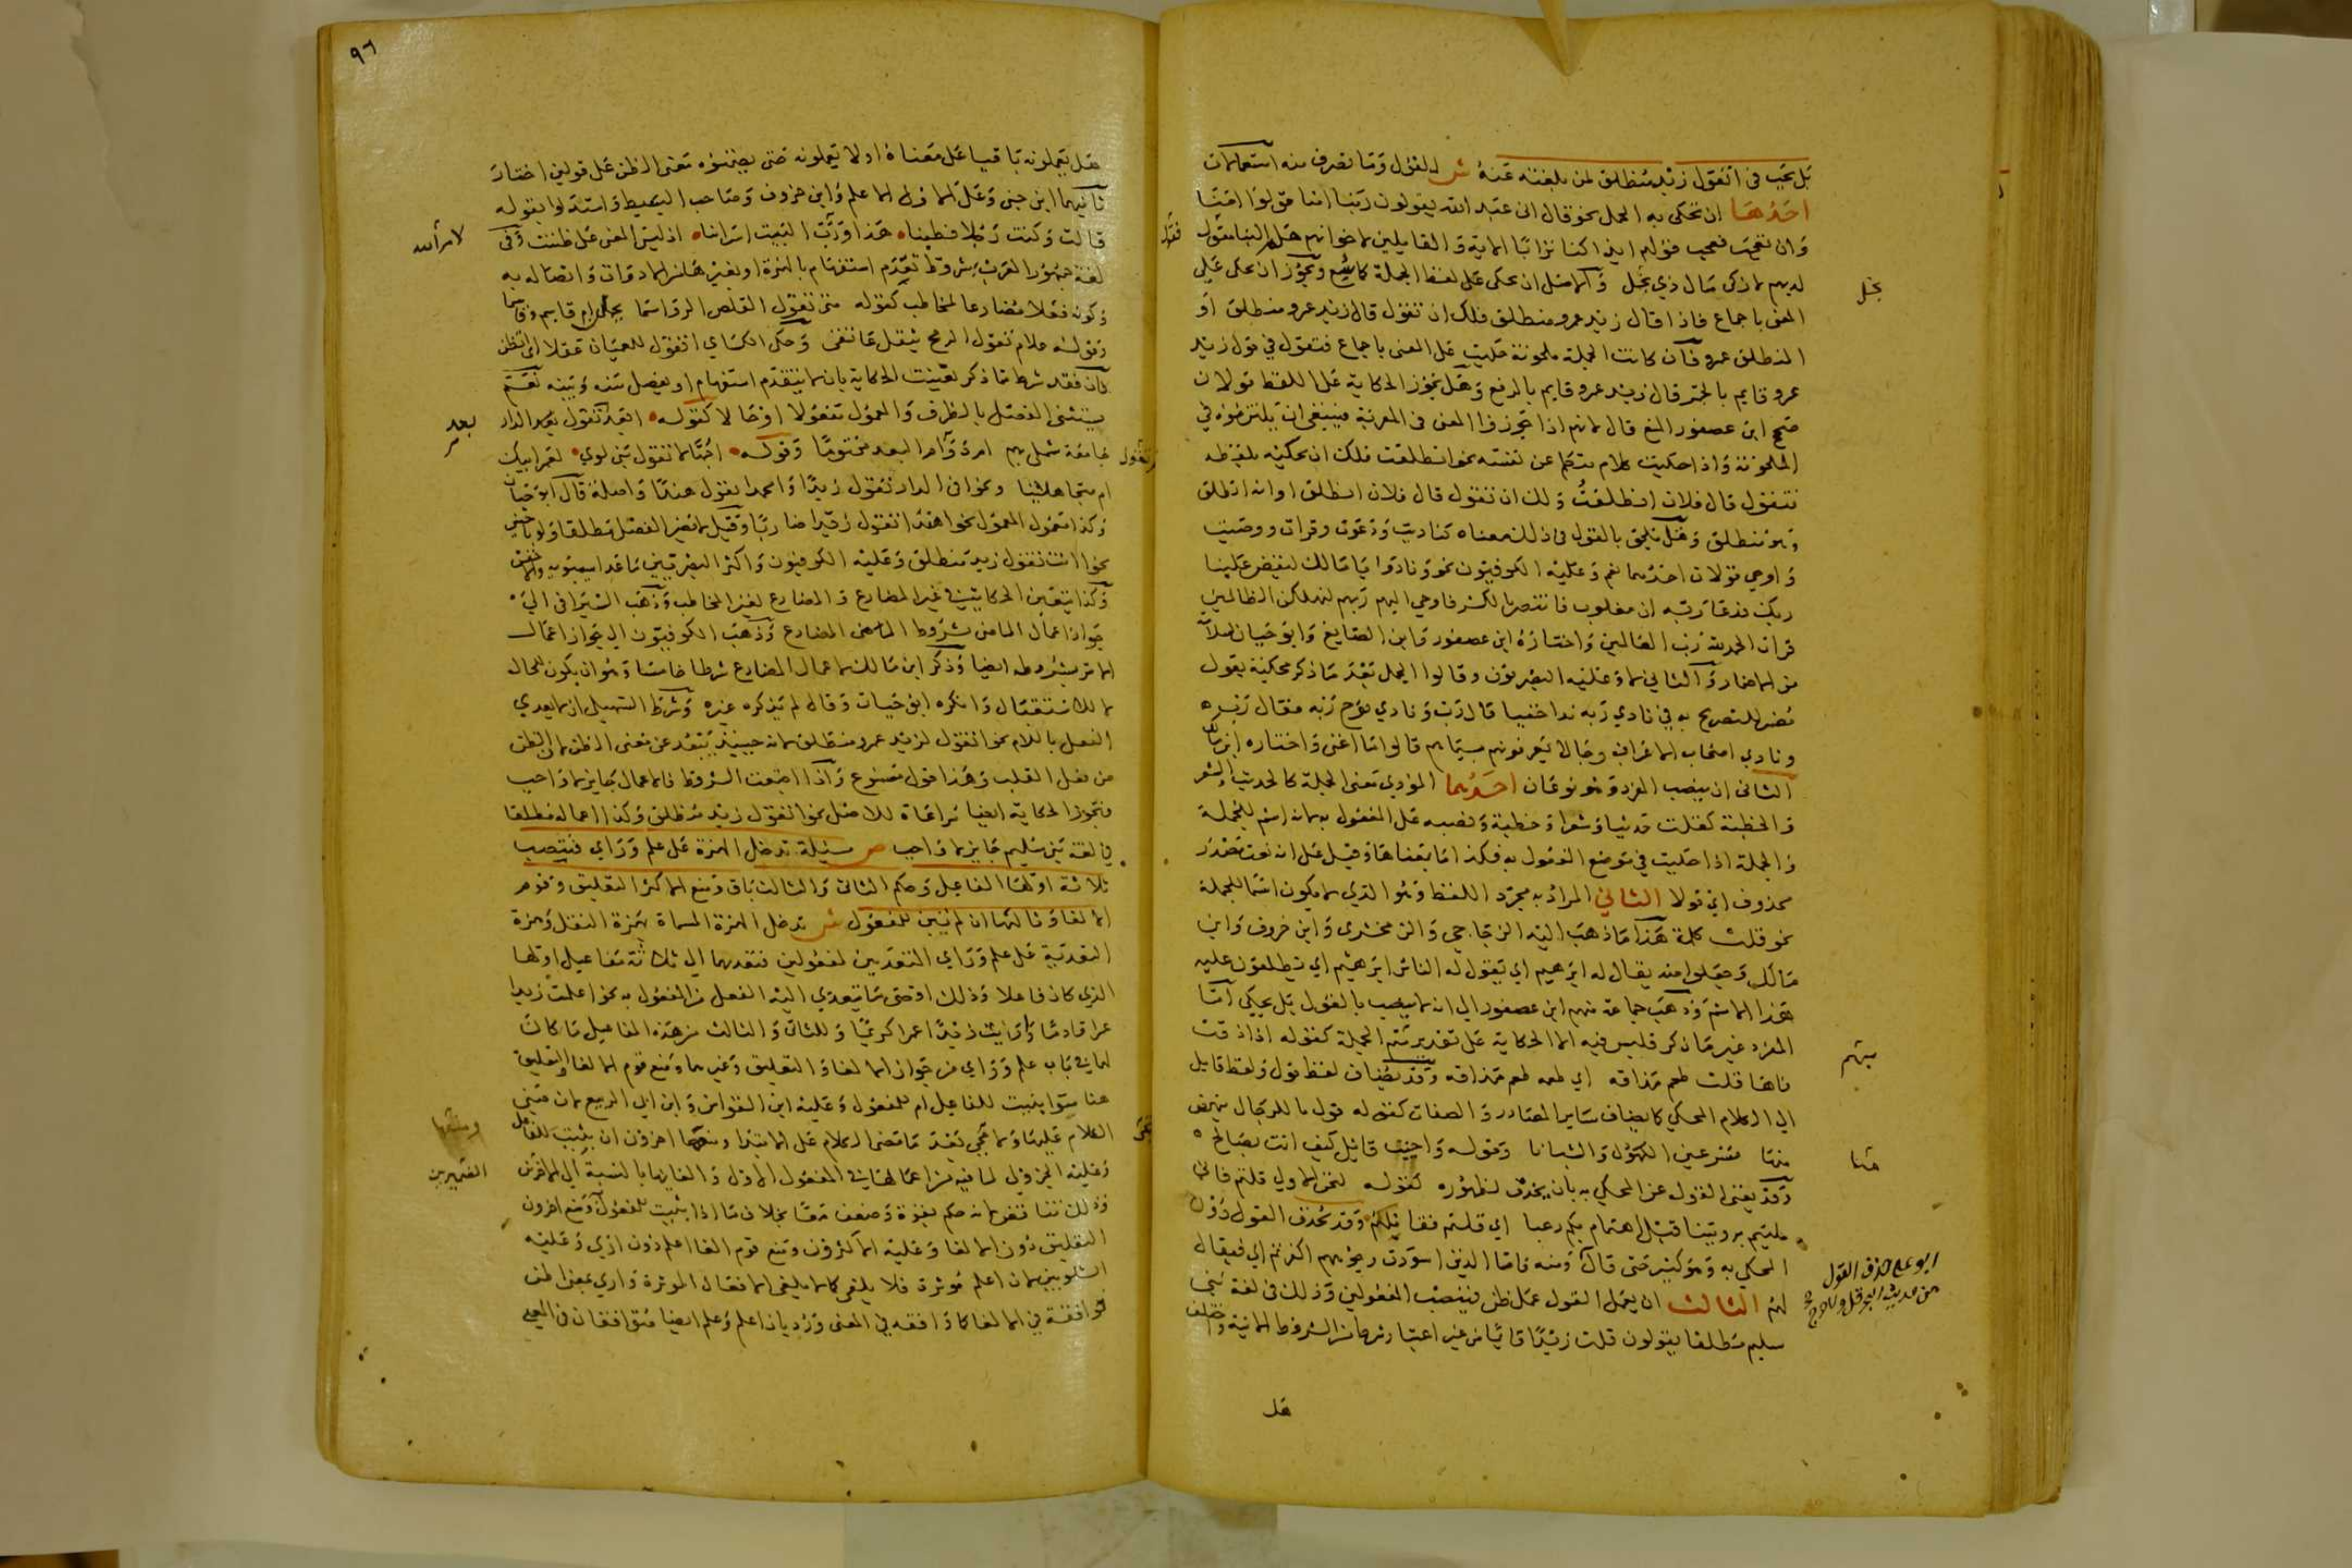 بل يجب في اتقول زيد منطلق لمن بلغته عنه ش للقول وما تصرف منه استعمالات
احدها ان تحكى به الجمل نحو قال اني عبد الله يقولون ربنا امنا قولوا امنا
وان تعجب فعجب قولهم ائذا كنا ترابا الاية والقايلين لاخوانهم هلم الينا
لديهم مال ذي بخل والاصل ان يحكى لفظ الجملة كما سمع ويجوز ان يحكى على
المعنى باجماع فاذا قال زيد عمرو منطلق فلك ان تقول قال زيد عمرو منطلق او
المنطلق عمرو فان كانت الجملة ملحونة حكيت على المعنى باجماع فتقول في قول زيد
عمرو قايم بالجر قال زيد عمرو قايم بالرفع وهل تجوز الحكاية على اللفظ قولان
صحح ابن عصفور المنع قال لانهم اذا جوزوا المعنى في المعربة فينبغي ان يلتزموه في
الملحونة واذا حكيت كلام متكلم عن نفسه نحو انطلقت فلك ان تحكيه بلفظه
فتقول قال فلان انطلقت ولك ان تقول قال فلان انطلق او انه انطلق
وهو منطلق وهل يلحق بالقول في ذلك معناه كناديت ودعوت وقرات ووصيت
واوحي قولان احدهما نعم وعليه الكوفيون نحو ونادوا يا مالك ليقض علينا
ربك فدعا ربه اني مغلوب فانتصر فاوحى اليهم ربهم لنهلكن الظالمين
قرات الحمد لله رب العالمين واختاره ابن عصفور وابن الصايغ وابو حيان لسلامته
من الاضمار والثاني لا وعليه البصريون وقالوا الجمل بعد ما ذكر محكية بقول
مضمر للتصريح به في نادي ربه نداء خفيا قال رب ونادي نوح ربه فقال رب
ونادي اصحاب الاعراف رجالا يعرفونهم بسيماهم قالوا ما اغنى واختاره ابن مالك
الثاني ان ينصب المفرد وهو نوعان احدهما المؤدي معنى الجملة كالحديث والشعر
والخطبة كقلت حديثا وشعرا وخطبة ونصبه على المفعول به لانه اسم للجملة
والجملة اذا حكيت في موضع المفعول به فكذا ما بمعناها وقيل على انه نعت مصدر
محذوف اي قولا الثاني المراد به مجرد اللفظ وهو الذي لا يكون اسما للجملة
نحو قلت كلمة هذا ما ذهب اليه الزجاجي والزمخشري وابن خروف وابن
مالك وجعلوا منه يقال له ابرهيم اي يقول له الناس ابرهيم اي يطلقون عليه
هذا الاسم وذهب جماعة منهم ابن عصفور الى انه لا ينصب بالقول بل يحكي اما
المفرد غير ما ذكر فليس فيه الا الحكاية على تقدير متمم الجملة كقوله اذا ذقت
فاها قلت طعم مذاقه اي طعمه طعم مذاقه وقد يضاف لفظ قول ولفظ قايل
الى الكلام المحكي كما يضاف ساير المصادر والصفات كقوله قول يا للرجال ينهض
منا مسرعين الكهول والشبانا وقوله واجبت قايل كيف انت بصالح
وقد يغني القول عن المحكي به بان يحذف لظهوره كقوله لنحن الاولي قلتم فاني
مليتم برويتنا قبل اهتمام بكم رعبا اي قلتم نقاتلهم وقد يحذف القول دون
المحكي به وهو كثير حتى قال ومنه فاما الذين اسودت وجوههم اكفرتم اي فيقال
لهم الثالث ان يعمل القول عمل ظن فينصب المفعولين وذلك في لغة بني
سليم مطلقا يقولون قلت زيدا قايما من غير اعتبار شرط من الشروط الاتية واختلف
هل
فنقول
بخل
متمم
منا
ابو علي حذف القول
من حديث البحر قل ولا حرج
٩٦
هل يعملونه باقيا على معناه او لا يعملونه حتى يضمنوه معنى الظن على قولين اختار
ثانيهما ابن جني وعلى الاول الاعلم وابن خروف وصاحب البسيط واستدلوا بقوله
قالت وكنت رجلا فطينا هذا ورب البيت اسراينا اذ ليس المعنى على ظننت وفي
لغة جمهور العرب بشروط تقدم استفهام بالهمزة او بغيرها من الادوات واتصاله به
وكونه فعلا مضارعا لمخاطب كقوله متى تقول القلص الرواسما يحملن ام قاسم وقاسما
وقوله علام تقول الرمح يثقل عاتقي وحكى الكساي اتقول للعميان عقلا اي اتظن
فان فقد شرط مما ذكر تعينت الحكاية بان لا يتقدم استفهام او يفصل بينه وبينه نعم
يستثنى الفصل بالظرف والمعمول مفعولا او حالا كقوله ابعد بعد تقول الدار
جامعة شملي بهم ام تقول البعد محتوما وقوله اجهالا تقول بني لوي لعمر ابيك
ام متجاهلينا ونحو افي الدار تقول زيدا وا عمدا تقول هندا واصلة قال ابو حيان
وكذا معمول المعمول نحو اهندا تقول زيدا ضاربا وقيل لا يضر الفصل مطلقا ولو باجنبي
نحو اانت تقول زيد منطلق وعليه الكوفيون واكثر البصريين ما عدا سيبويه والاخفش
وكذا يتعين الحكاية في غير المضارع والمضارع لغير المخاطب وذهب السيرافي الى
جواز اعمال الماضي بشروط المضارع وذهب الكوفيون الى جواز اعمال
الامر بشروطه ايضا وذكر ابن مالك لاعمال المضارع شرطا خامسا وهو ان يكون للحال
لا للاستقبال وانكره ابو حيان وقال لم يذكره غيره وشرط السهيلي ان لا يعدي
الفعل باللام نحو اتقول لزيد عمرو منطلق لانه حينئذ يبعد عن معنى الظن لان الظن
من فعل القلب وهذا قول مسموع واذا اجتمعت الشروط فالاعمال جايز لا واجب
فتجوز الحكاية ايضا مراعاة للاصل نحو اتقول زيد منطلق وكذا اعماله مطلقا
في لغة بني سليم جايز لا واجب ص مسئلة تدخل الهمزة على علم وراي فينصب
ثلاثة اولها الفاعل وحكم الثاني والثالث باق ومنع الاكثر التعليق وقوم
الالغاء وثالثها ان لم يبن للمفعول ش تدخل الهمزة المسماة همزة النقل وهمزة
التعدية على علم وراي المتعديين لمفعولين فتعديهما الى ثلاثة مفاعيل اولها
الذي كان فاعلا وذلك اقصى ما يتعدي اليه الفعل من المفعول به نحو اعلمت زيدا
عمرا قادما واريت زيدا عمرا كريما وللثاني والثالث من هذه المفاعيل ما كان
لهما في باب علم وراي من جواز الالغاء والتعليق وغيرهما ومنع قوم الالغا والتعليق
هنا سوا بنيت للفاعل ام للمفعول وعليه ابن القواس وابن ابي الربيع لان مبنى
الكلام عليهما ولا يجي بعد ما مضى الكلام على الابتدا ومنعهما اخرون ان بنيت للفاعل
وعليه الجزولي لما فيه من اعمالها في المفعول الاول والغايها بالنسبة الى الاخرين
وذلك تناقض لانه حكم بقوة وضعف معا بخلاف ما اذا بنيت للمفعول ومنع اخرون
التعليق دون الالغا وعليه الاكثرون ومنع قوم الغا اعلم دون اري وعليه
الشلوبين لان اعلم موثرة فلا يلغى كما لا يلغى الافعال الموثرة واري بمعنى اظن
موافقة في الالغا كما وافقه في المعنى ورد بان اعلم وعلم ايضا متوافقان في المعنى
بعد